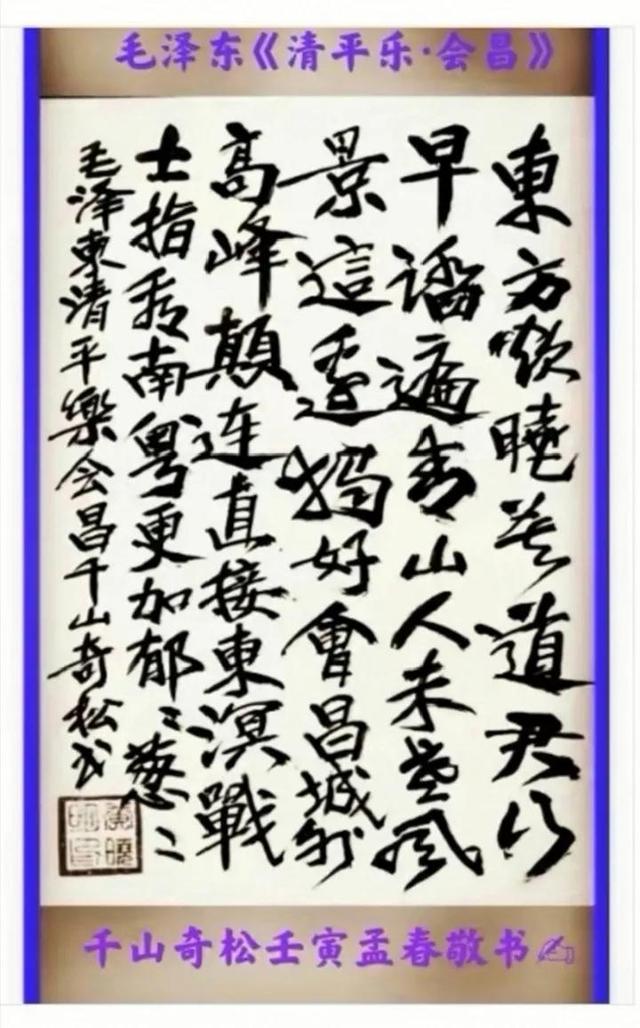 毛泽东《清平乐·会昌》
東方欲曉莫道君行
早踏遍青山人未老風
景這邊獨好會昌城外
高峰顛连直接東溟戰
士指看南粤更加郁〻葱〻
毛泽東清平樂会昌千山奇松书
千山奇松壬寅孟春敬书✍